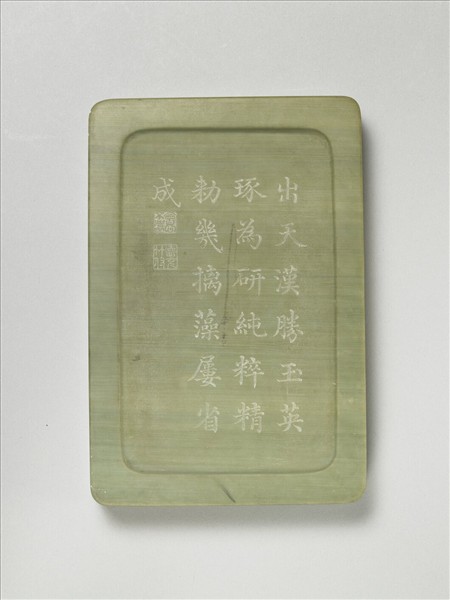 出天漢勝玉英
琢為研純粹精
勅幾摛藻屢省
成